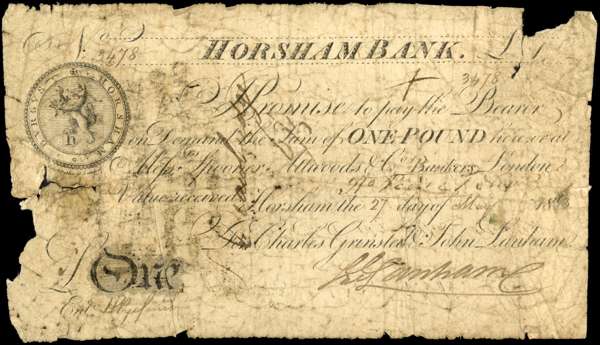 No 3478 HORSHAM BANK. £1
3478
I Promise to pay the Bearer
on Demand the Sum of ONE POUND here or at
Messrs Spooner, Attwoods & Co. Bankers London
Value received
Horsham the 27 day of May
For Charles Grinsted & John Lanham
£ One
J Lanham
Entd
HORSHAM